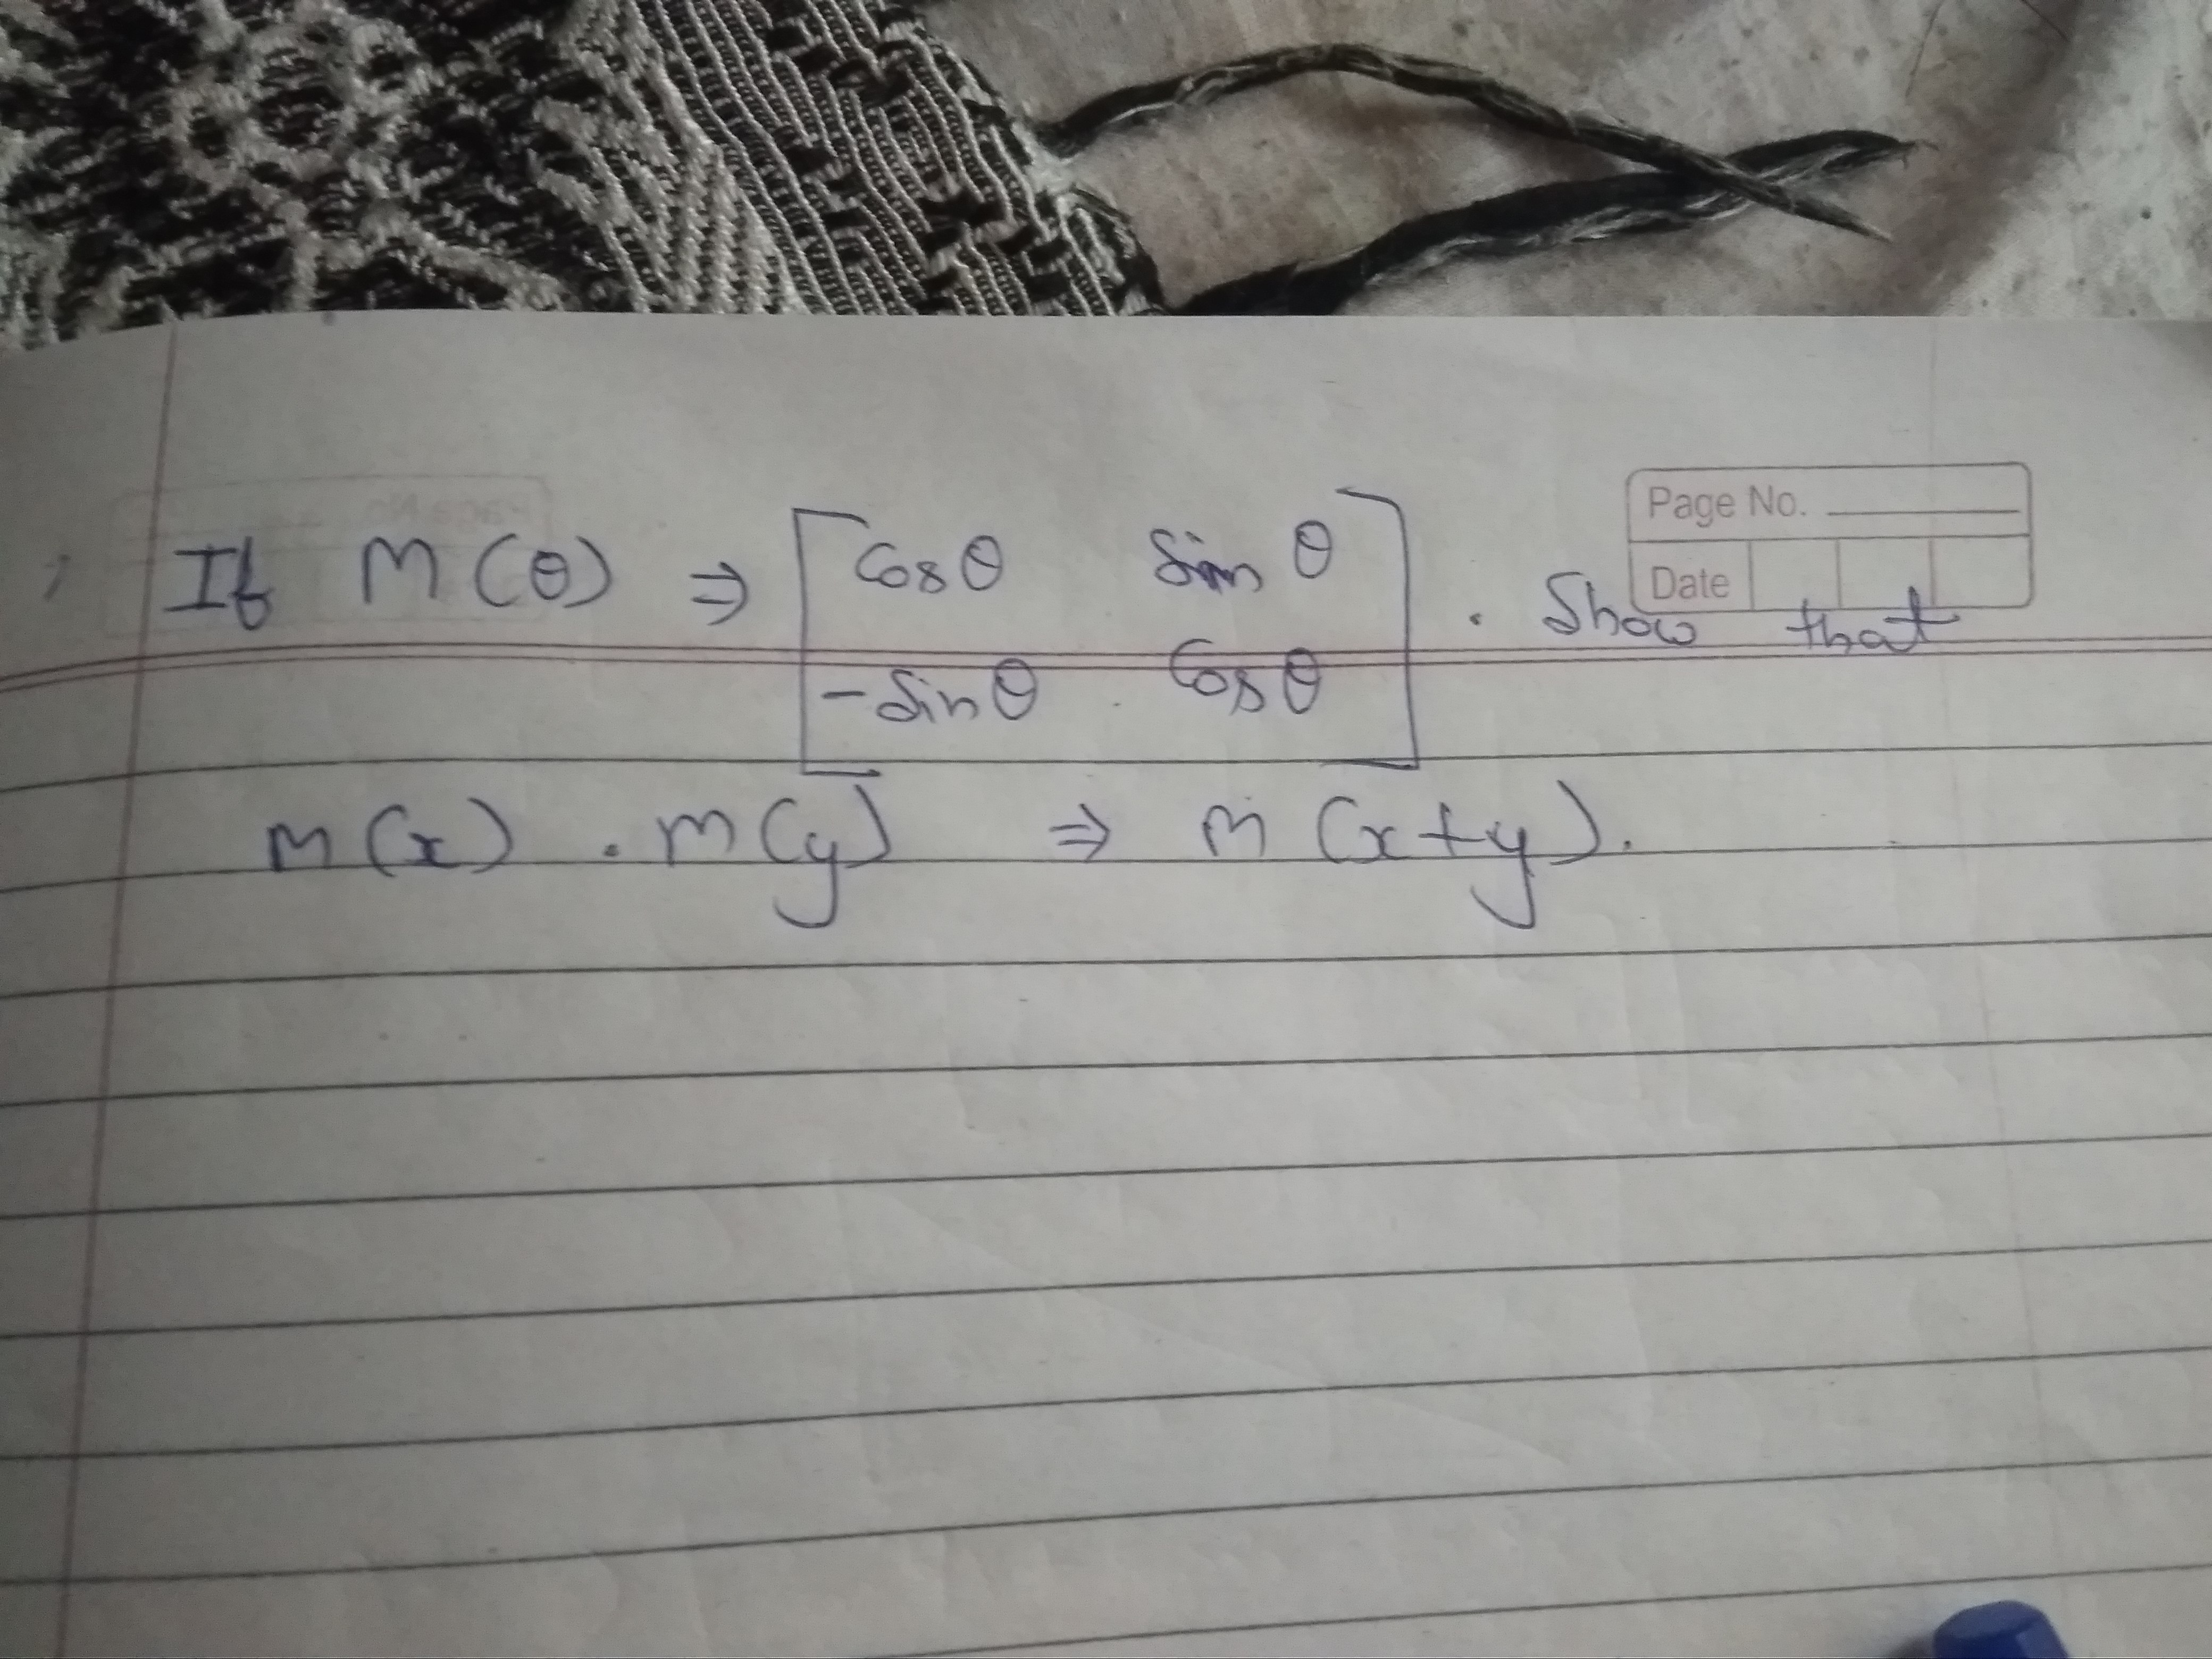 Page No.
Date
If M(θ) ⇒ [cosθ sin θ
-sinθ cosθ] . Show that
m(x) . m(y) ⇒ m(x+y).